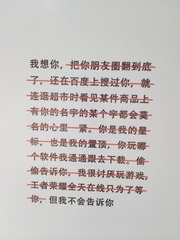 我想你，把你朋友圈翻到底
了，还在百度上搜过你，就
连逛超市时看见某件商品上
有你的名字的某个字都会莫
名的心里一紧。你是我的星
标，也是我的置顶，你玩哪
个软件我通通跟去下载。偷
偷告诉你，我很讨厌玩游戏，
王者荣耀全天在线只为了等
你，但我不会告诉你